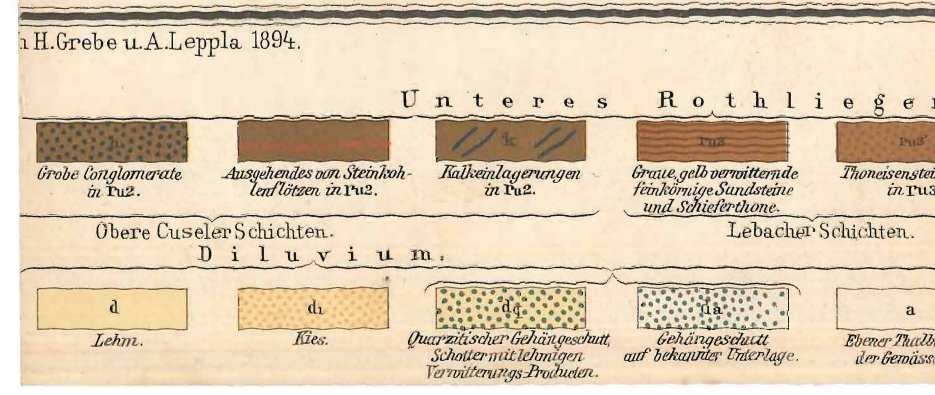 H. Grebe u. A. Leppla 1894.
Unteres Rothliege
h
k
ru3
ru3
Grobe Conglomerate
in ru2.
Ausgehendes von Steinkoh-
lenflötzen in ru2.
Kalkeinlagerungen
in ru2.
Graue, gelb verwitternde
feinkörnige Sandsteine
und Schieferthone.
Thoneisenstei
in ru3
Obere Cuseler Schichten.
Lebacher Schichten.
Diluvium.
d
d1
dq
da
a
Lehm.
Kies.
Quarzitischer Gehängeschutt,
Schotter mit lehmigen
Verwitterungs-Producten.
Gehängeschutt
auf bekannter Unterlage.
Ebener Thalb
der Gewäss